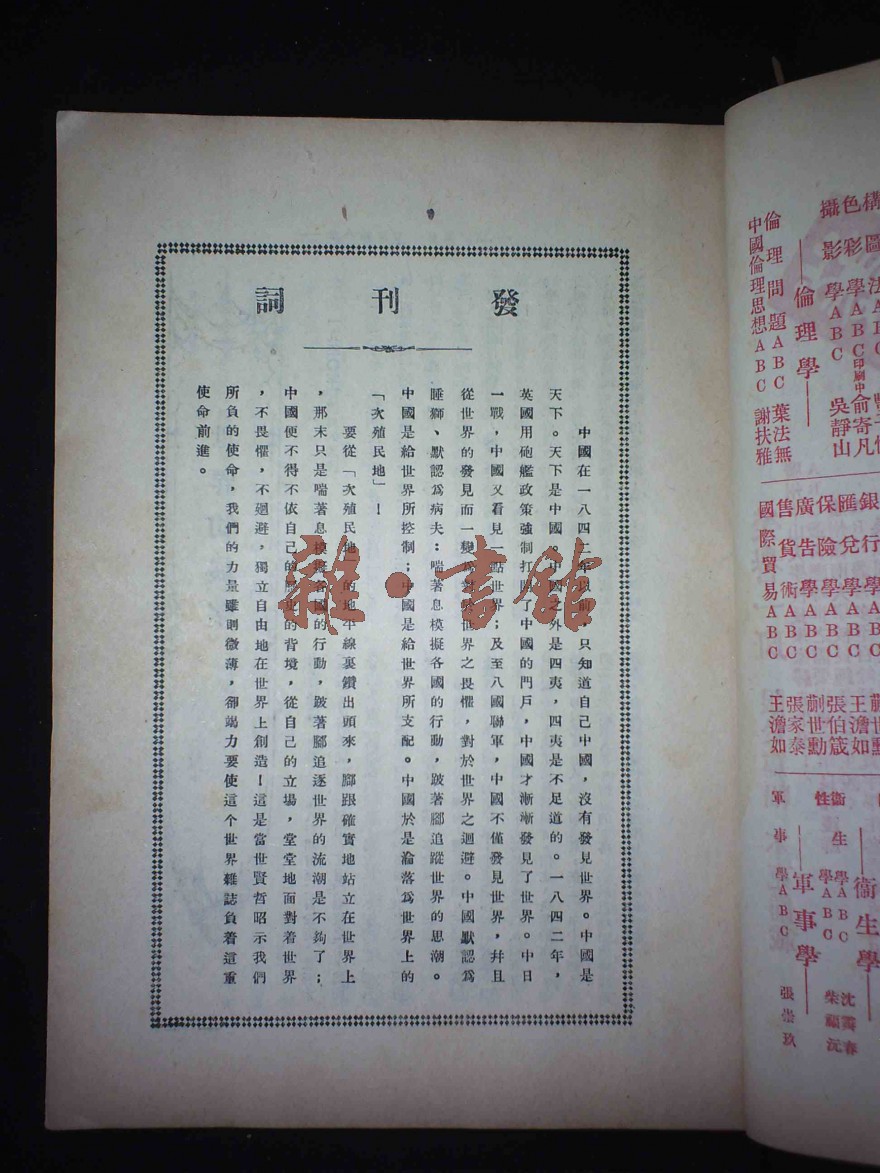 發刊詞
中國在一八四二年以前，只知道自己中國，沒有發見世界。中國是
天下。天下是中國。中國之外是四夷，四夷是不足道的。一八四二年，
英國用砲艦政策強制打開了中國的門戶，中國才漸漸發見了世界。中日
一戰，中國又看見一點世界；及至八國聯軍，中國不僅發見世界，幷且
從世界的發見而一變爲對於世界之畏懼，對於世界之迴避。中國默認爲
睡獅、默認爲病夫：喘著息模擬各國的行動，跛著腳追蹤世界的思潮。
中國是給世界所控制；中國是給世界所支配。中國於是淪落爲世界上的
「次殖民地」！
要從「次殖民地」的地平線裏鑽出頭來，腳跟確實地站立在世界上
，那末只是喘著息模擬各國的行動，跛著腳追逐世界的流潮是不夠了；
中國便不得不依自己的歷史的背境，從自己的立場，堂堂地面對着世界
，不畏懼，不迴避，獨立自由地在世界上創造！這是當世賢哲昭示我們
所負的使命，我們的力量雖則微薄，卻竭力要使這个世界雜誌負着這重
使命前進。
雜·書館
色彩學ABC 印刷中 俞寄凡
攝影學ABC 吳靜山
倫理學
倫理問題ABC 葉法無
中國倫理思想ABC 謝扶雅
銀行學ABC
匯兌學ABC 王澹如
保險學ABC 張伯箴
廣告學ABC 蒯世勳
售貨術ABC 張家泰
國際貿易ABC 王澹如
衛生學
衛生學ABC
性學ABC 柴福沅
軍事學
軍事學ABC 張崇玖